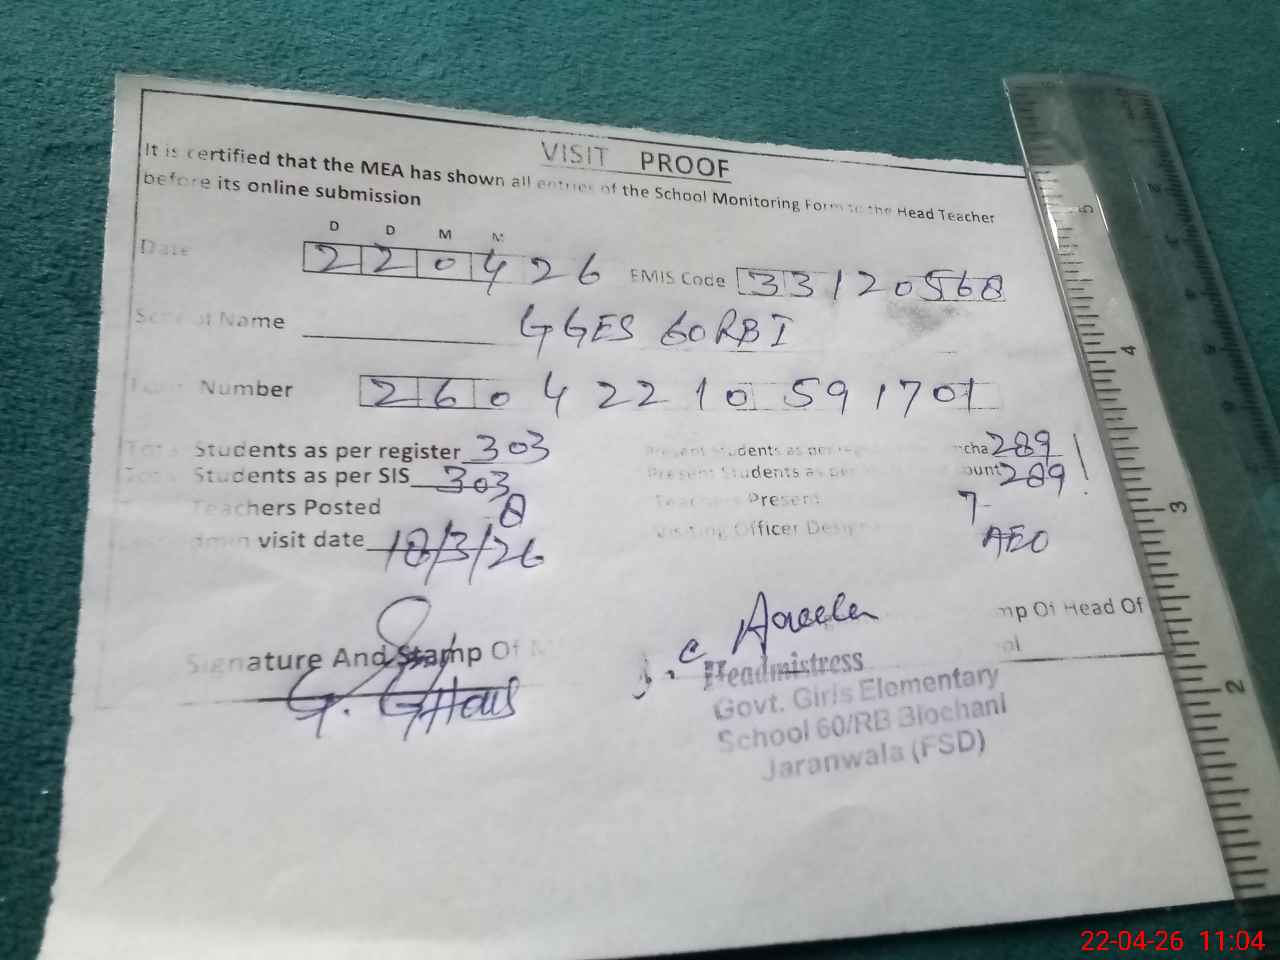 VISIT PROOF
It is certified that the MEA has shown all entries of the School Monitoring Form to the Head Teacher
before its online submission
D D M M
Date 220426 EMIS Code 33120568
School Name GGES 60RBI
Number 26042210591701
Total Students as per register 303 Present Students as per 289
Total Students as per SIS 303 Present Students as per 289
Teachers Posted 8 Teachers Present 7
visit date 18/3/26 Visiting Officer AEO
Signature And Stamp Of Of Head Of
Headmistress
Govt. Girls Elementary
School 60/RB Blochani
Jaranwala (FSD)
5
4
3
2
22-04-26 11:04